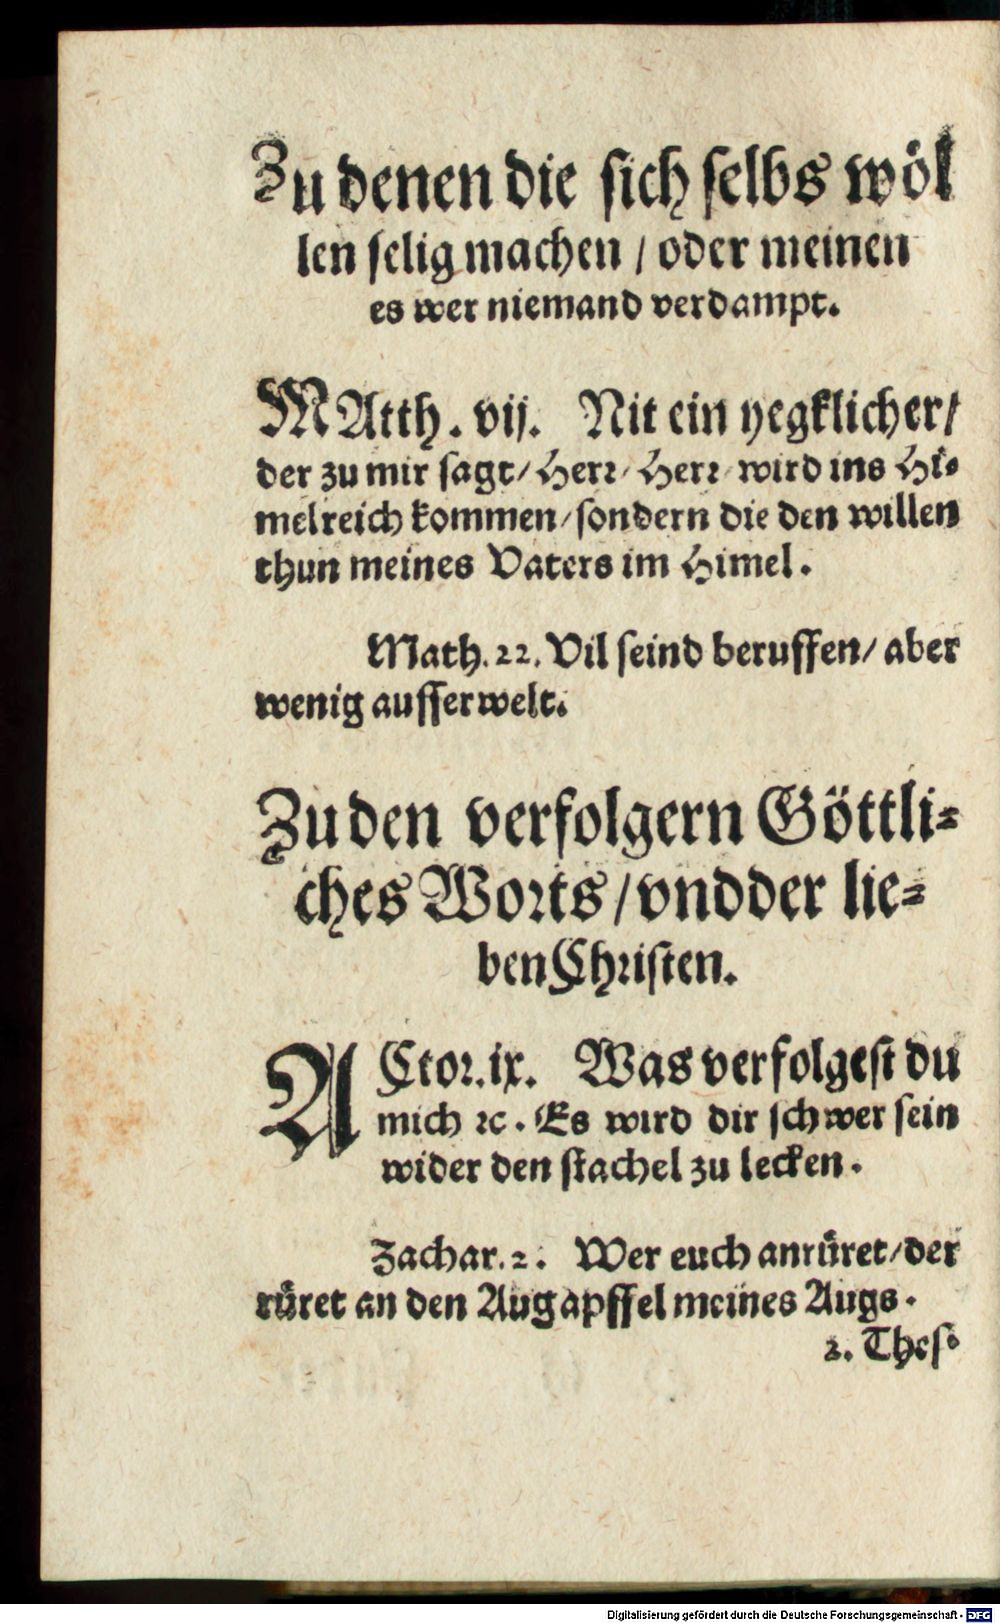 Zu denen die sich selbs wöl
len selig machen / oder meinen
es wer niemand verdampt.
MAtth. vij. Nit ein yegklicher/
der zu mir sagt/ Herr/ Herr/ wird ins Hī⸗
melreich kommen/ sondern die den willen
thun meines Vaters im Himel.
Math. 22. Vil seind beruffen/ aber
wenig ausserwelt.
Zu den verfolgern Göttli⸗
ches Worts / vnd der lie⸗
ben Christen.
ACtor. ix. Was verfolgest du
mich ꝛc. Es wird dir schwer sein
wider den stachel zu lecken.
Zachar. 2. Wer euch anrüret/ der
rüret an den Augapffel meines Augs.
2. Thes⸗
Digitalisierung gefördert durch die Deutsche Forschungsgemeinschaft - DFG